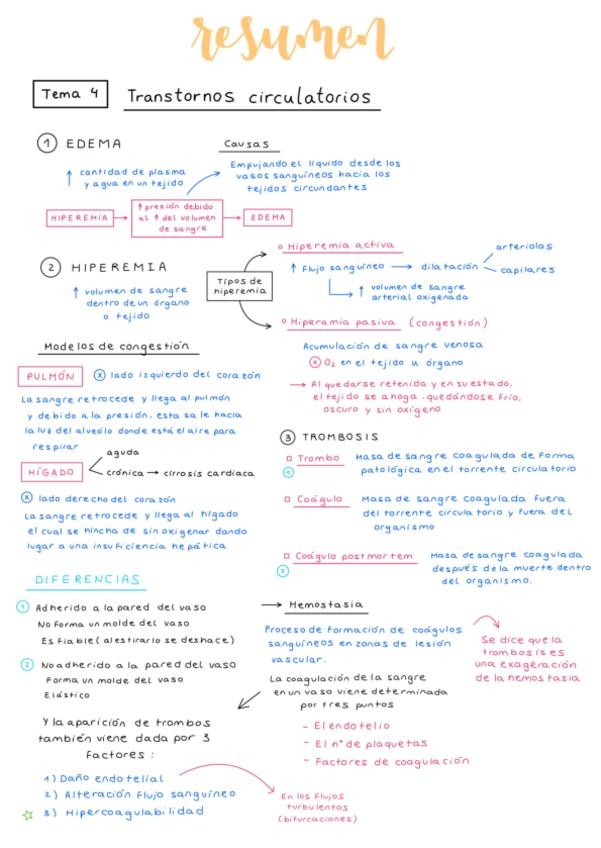 resumen
Tema 4
Transtornos circulatorios
1 EDEMA
↑ cantidad de plasma
y agua en un tejido
Causas
Empujando el líquido desde los
vasos sanguíneos hacia los
tejidos circundantes
HIPEREMIA →
↑ presión debido
al ↑ del volumen
de sangre
→ EDEMA
2 HIPEREMIA
↑ volumen de sangre
dentro de un órgano
o tejido
Tipos de
hiperemia
o Hiperemia activa
↑ Flujo sanguíneo → dilatación
arteriolas
capilares
↑ volumen de sangre
arterial oxigenada
o Hiperamia pasiva (congestión)
Acumulación de sangre venosa
x O₂ en el tejido u órgano
→ Al quedarse retenida y en su estado,
el tejido se ahoga - quedándose frío,
oscuro y sin oxígeno
Modelos de congestión
PULMÓN x lado izquierdo del corazón
La sangre retrocede y llega al pulmón
y debido a la presión. esta sale hacia
la luz del alveólo donde está el aire para
respirar
HÍGADO
aguda
crónica → cirrosis cardiaca
x lado derecho del corazón
La sangre retrocede y llega al hígado
el cual se hincha de sin oxigenar dando
lugar a una insuficiencia hepática
3 TROMBOSIS
Trombo
1
Masa de sangre coagulada de forma
patológica en el torrente circulatorio
Coágulo
Masa de sangre coagulada fuera
del torrente circulatorio y fuera del
organismo
Coágulo postmortem
2
Masa de sangre coagulada
después de la muerte dentro
del organismo.
DIFERENCIAS
1 Adherido a la pared del vaso
No forma un molde del vaso
Es fiable (al estirarlo se deshace)
2 No adherido a la pared del vaso
Forma un molde del vaso
Elástico
→ Hemostasia
Proceso de formación de coágulos
sanguíneos en zonas de lesión
vascular.
Se dice que la
trombosis es
una exageración
de la hemostasia
La coagulación de la sangre
en un vaso viene determinada
por tres puntos
- El endotelio
- El nº de plaquetas
- Factores de coagulación
Y la aparición de trombos
también viene dada por 3
factores :
1) Daño endotelial
2) Alteración flujo sanguíneo
3) Hipercoagulabilidad
En los flujos
turbulentos
(bifurcaciones)